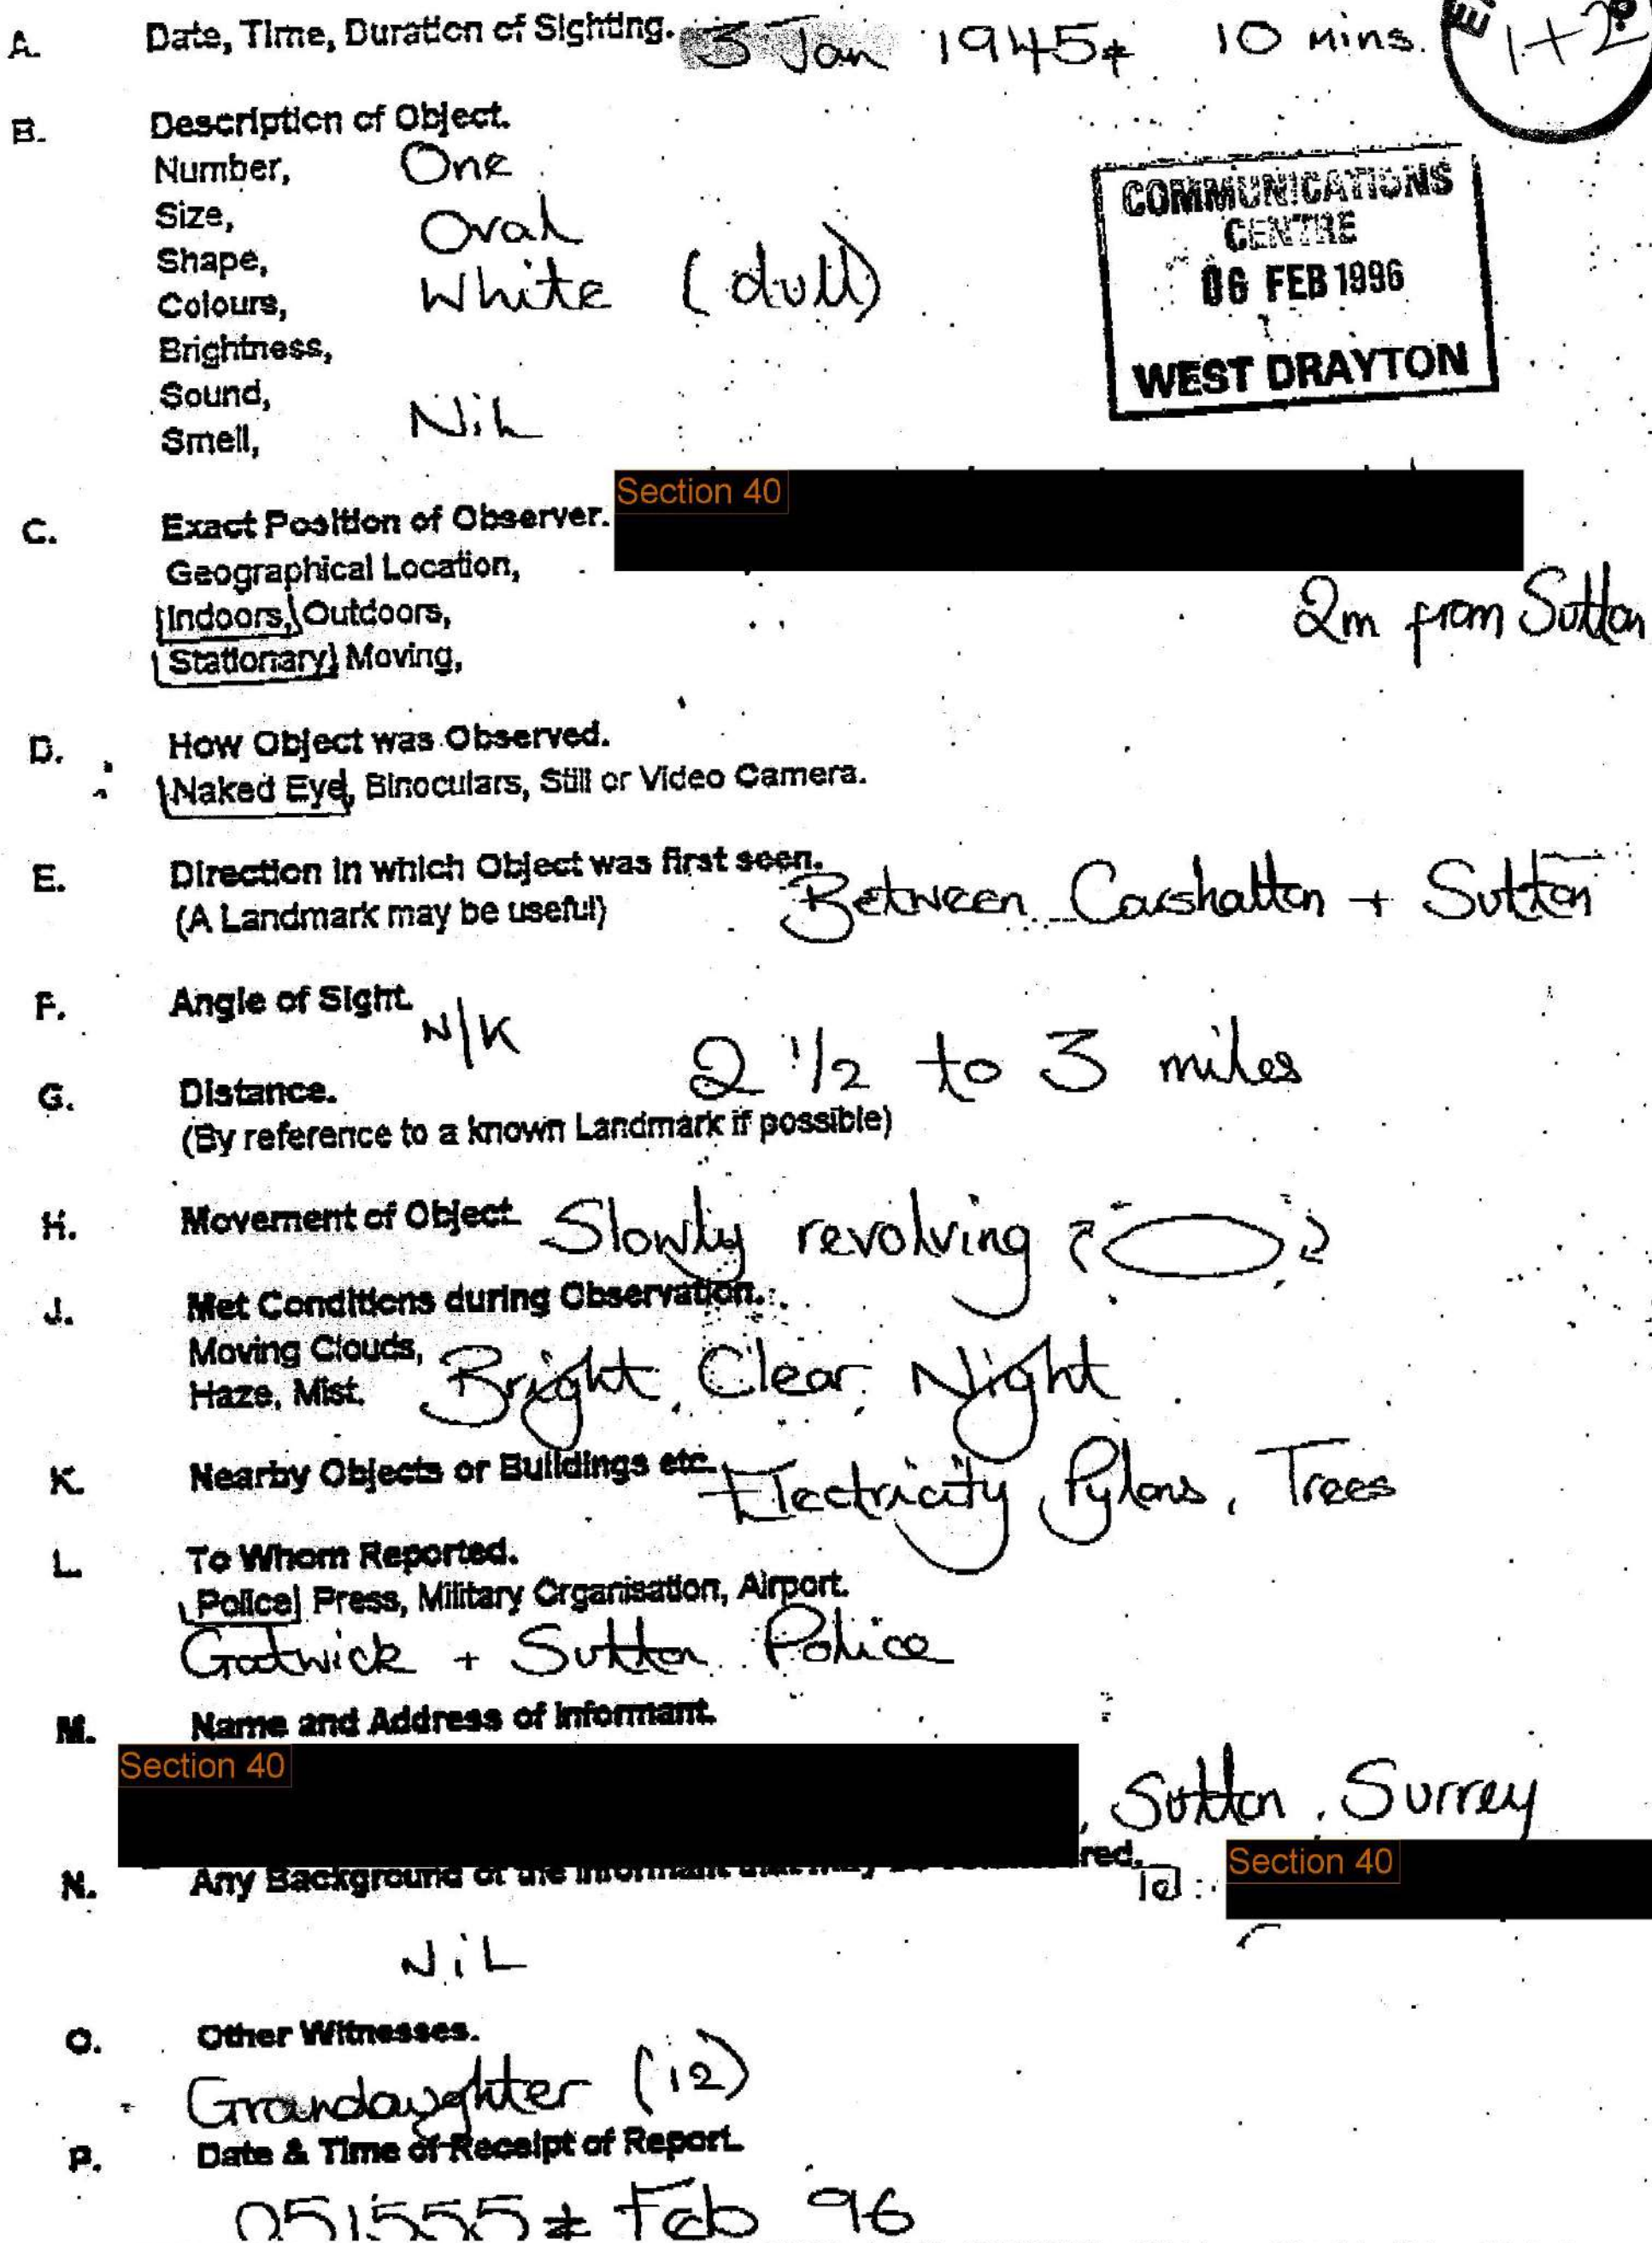 A. Date, Time, Duration of Sighting. 3 Jan 1945z 10 mins. 1+2
B. Description of Object.
Number, One
Size,
Shape, Oval
Colours, White (dull)
Brightness,
Sound,
Smell, Nil
COMMUNICATIONS
CENTRE
06 FEB 1996
WEST DRAYTON
C. Exact Position of Observer. Section 40
Geographical Location,
Indoors, Outdoors, 2m from Sutton
Stationary, Moving,
D. How Object was Observed.
Naked Eye, Binoculars, Still or Video Camera.
E. Direction in which Object was first seen. Between Carshalton + Sutton
(A Landmark may be useful)
F. Angle of Sight. N/K
G. Distance. 2 1/2 to 3 miles
(By reference to a known Landmark if possible)
H. Movement of Object. Slowly revolving
J. Met Conditions during Observation.
Moving Clouds,
Haze, Mist. Bright, Clear, Night
K. Nearby Objects or Buildings etc. Electricity Pylons, Trees
L. To Whom Reported.
Police, Press, Military Organisation, Airport.
Gatwick + Sutton Police
M. Name and Address of Informant.
Section 40 , Sutton, Surrey
N. Any Background of the Informant that may red. Tel: Section 40
NiL
O. Other Witnesses.
Grandaughter (12)
P. Date & Time of Receipt of Report.
051555z Feb 96